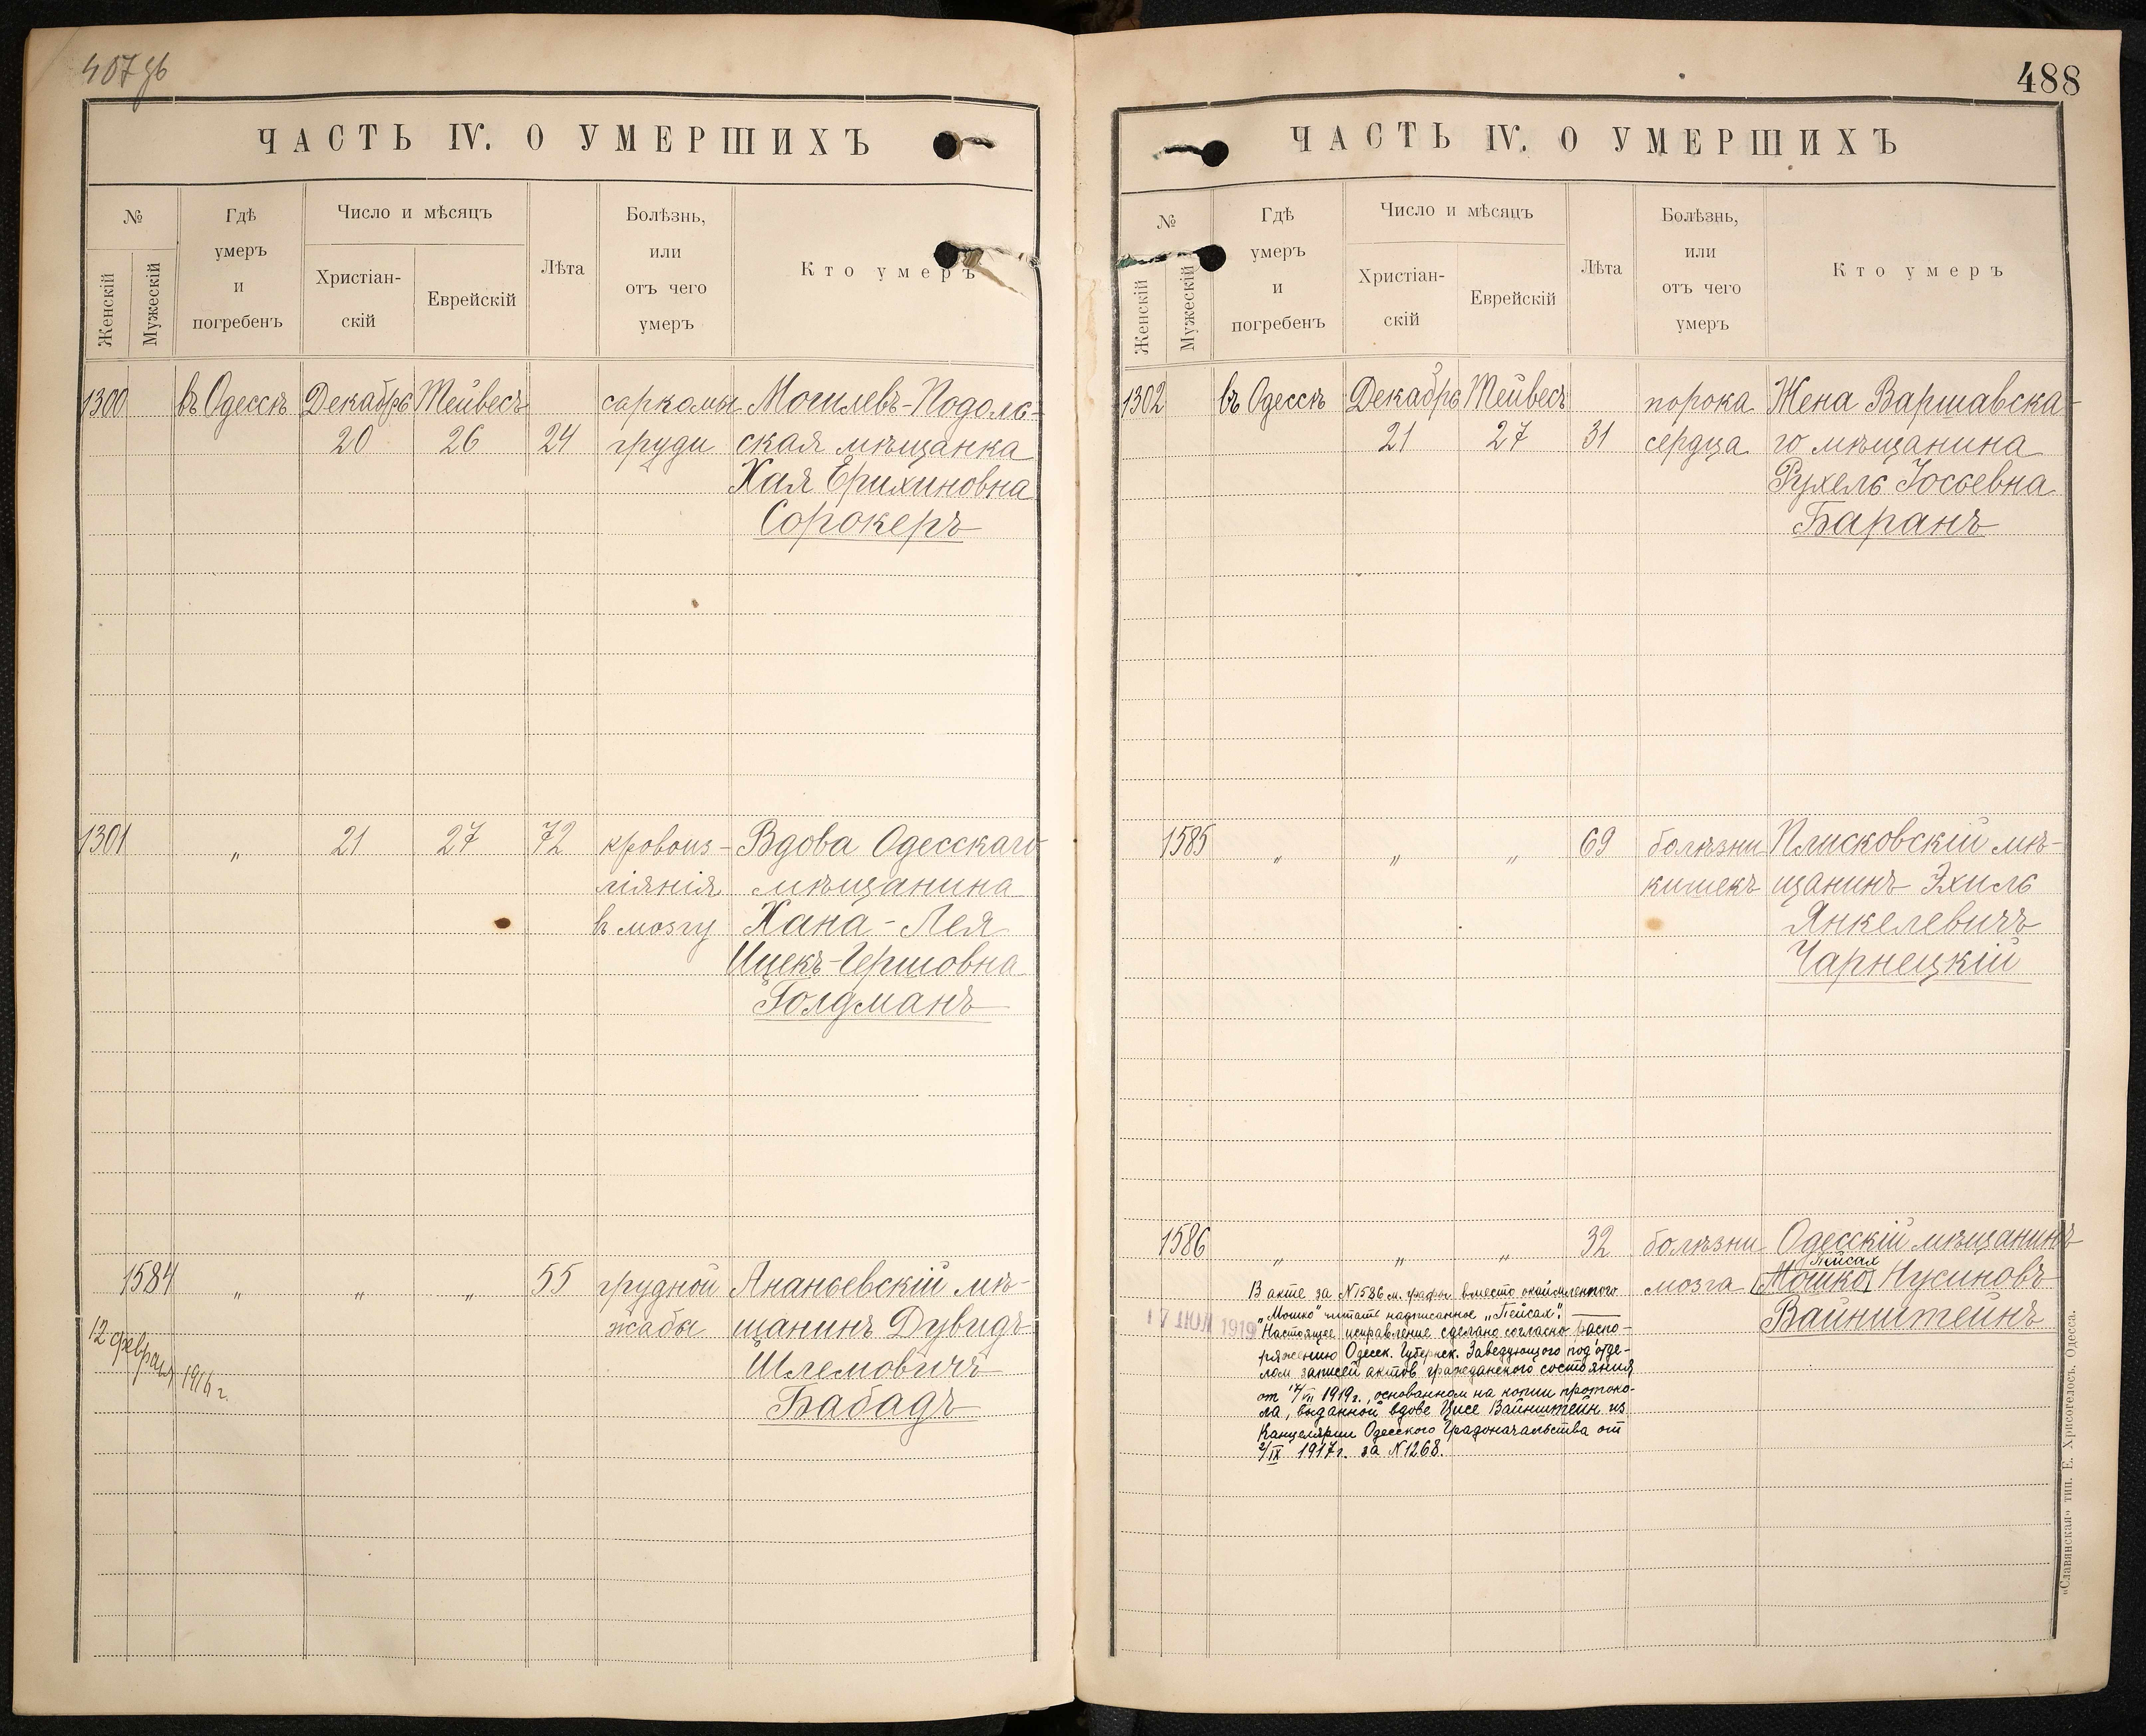 ЧАСТЬ IV. О УМЕРШИХЪ
№
Женскій
Мужескій
Гдѣ
умеръ
и
погребенъ
Число и мѣсяцъ
Христіан-
скій
Еврейскій
Лѣта
Болѣзнь,
или
отъ чего
умеръ
Кто умеръ
1300 въ Одессѣ Декабрь Тейвесъ саркомы Могилевъ-Подоль-
20 26 24 груди ская мѣщанка
Хая Ерихиновна
Сорокеръ
1301 „ 21 27 72 кровоиз- Вдова Одесскаго
ліянія мѣщанина
въ мозгу Хана-Лея
Ицекъ-Гершовна
Голдманъ
1584 „ „ „ 55 грудной Ананьевскій мѣ-
жабы щанинъ Дувидъ
Шлемовичъ
Бабадъ
12 февраля 1916 г.
488
ЧАСТЬ IV. О УМЕРШИХЪ
№
Женскій
Мужескій
Гдѣ
умеръ
и
погребенъ
Число и мѣсяцъ
Христіан-
скій
Еврейскій
Лѣта
Болѣзнь,
или
отъ чего
умеръ
Кто умеръ
1302 въ Одессѣ Декабрь Тейвесъ порока Жена Варшавска-
21 27 31 сердца го мѣщанина
Рухель Іосьевна
Баранъ
1585 „ „ „ 69 болѣзни Плисковскій мѣ-
кишекъ щанинъ Эхиль
Янкелевичъ
Чарнецкій
1586 „ „ „ 32 болѣзни Одесскій мѣщанинъ
Пейсах
мозга Мошко Нусиновъ
Вайнштейнъ
В акте за №1586 м. графы вместо окаймленного
„Мошко" читать надписанное „Пейсах".
17 ИЮЛ 1919
Настоящее исправление сделано согласно распо-
ряжению Одесск. Губернск. Заведующего подотде-
лом записей актов гражданского состояния
от 17/VII 1919г., основанном на копии протоко-
ла, выданной вдове Цисе Вайнштейн из
Канцелярии Одесского Градоначальства от
2/IX 1917г. за №1268.
«Славянская» тип. Е. Хрисогелосъ. Одесса.